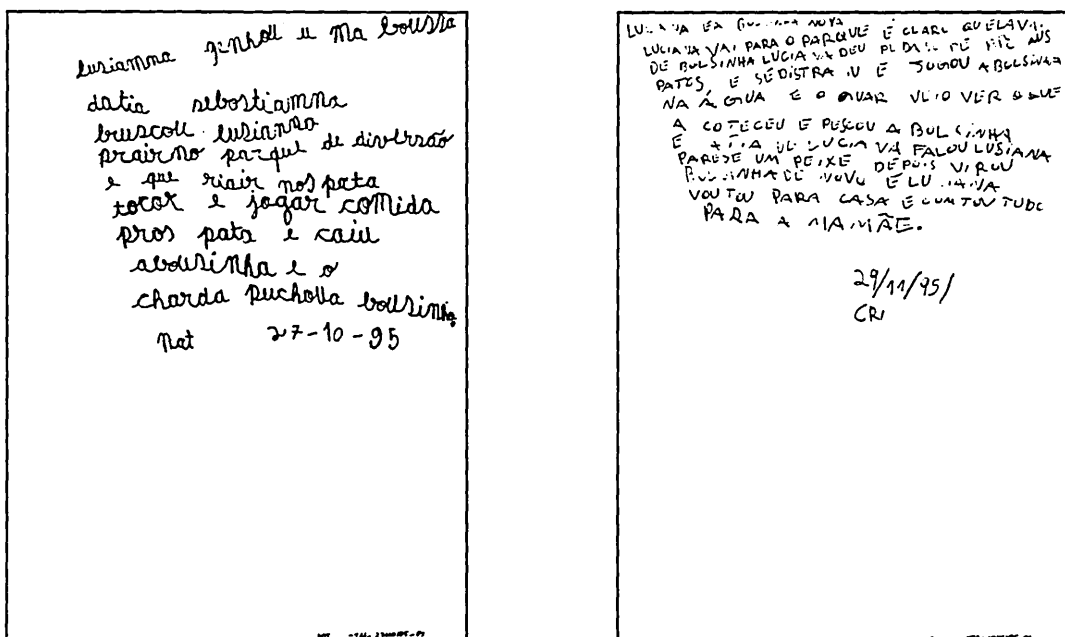 lusiamna ganhou u ma boussa
datia sebostiamna
bruscou lusianna
prairno parque de diversão
e que riair nos pata
tocar e jogar comida
pros pata e caiu
abousinha e o
charda puchou a bousinha
nat 27-10-95
NOVA
LUCIANA VAI PARA O PARQUE É CLARO QUE LAVAI
DE BOLSINHA LUCIANA DEU
PATOS, E SEDISTRAIU E JOGOU ABOLSINHA
NA ÁGUA E O GUAR VEIO VER O QUE
A COTECEU E PESCOU A BOLSINHA
E A TIA DE LUCIANA FALOU LUSIANA
PARESE UM PEIXE DEPOIS VIROU
BOLSINHA DE NOVO E LUCIANA
VOUTOU PARA CASA E CONTOU TUDO
PARA A MAMÃE.
29/11/95/
CRI